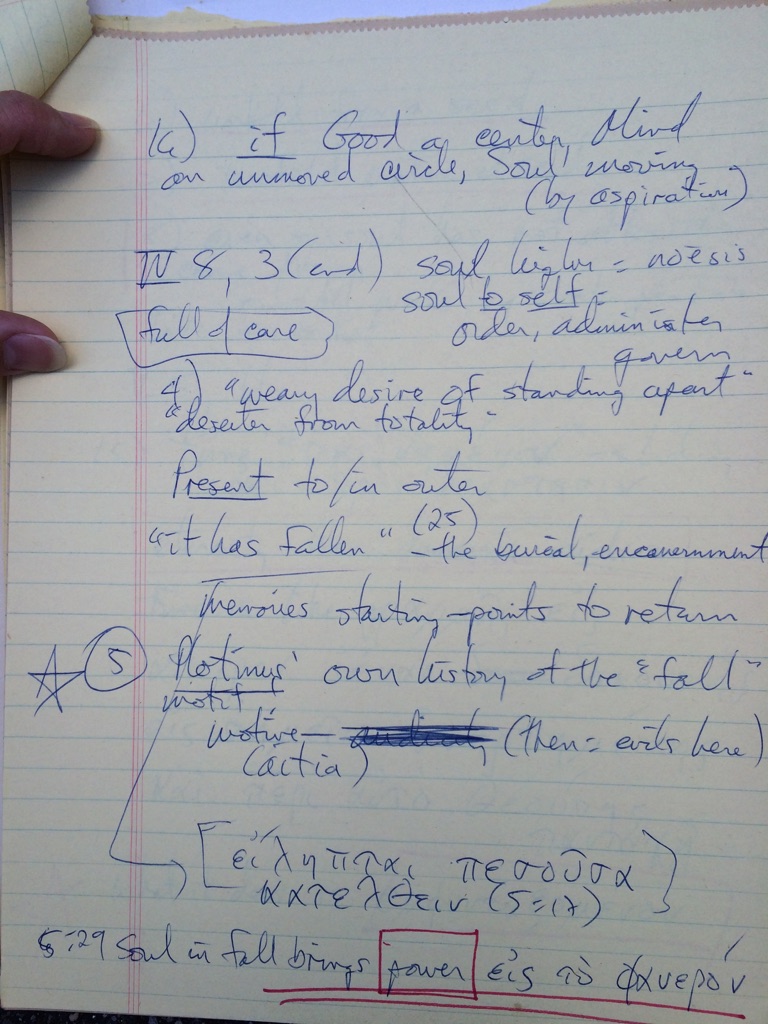 16) if Good a center, Mind
an unmoved circle, Soul moving
(by aspiration)
IV 8, 3 (end) soul higher = noēsis
soul to self =
full of care
order, administer
govern
4) "weary desire of standing apart"
"deserter from totality"
Present to/in outer
"it has fallen" (25) – the burial, encavernment
Memories starting-points to return
5 Plotinus' own history of the "fall"
motif
motive – (then = evils here)
(aitia)
[εἴληπται πεσοῦσα
κατελθεῖν (5:17)]
5:29 Soul in fall brings power εἰς τὸ φανερόν